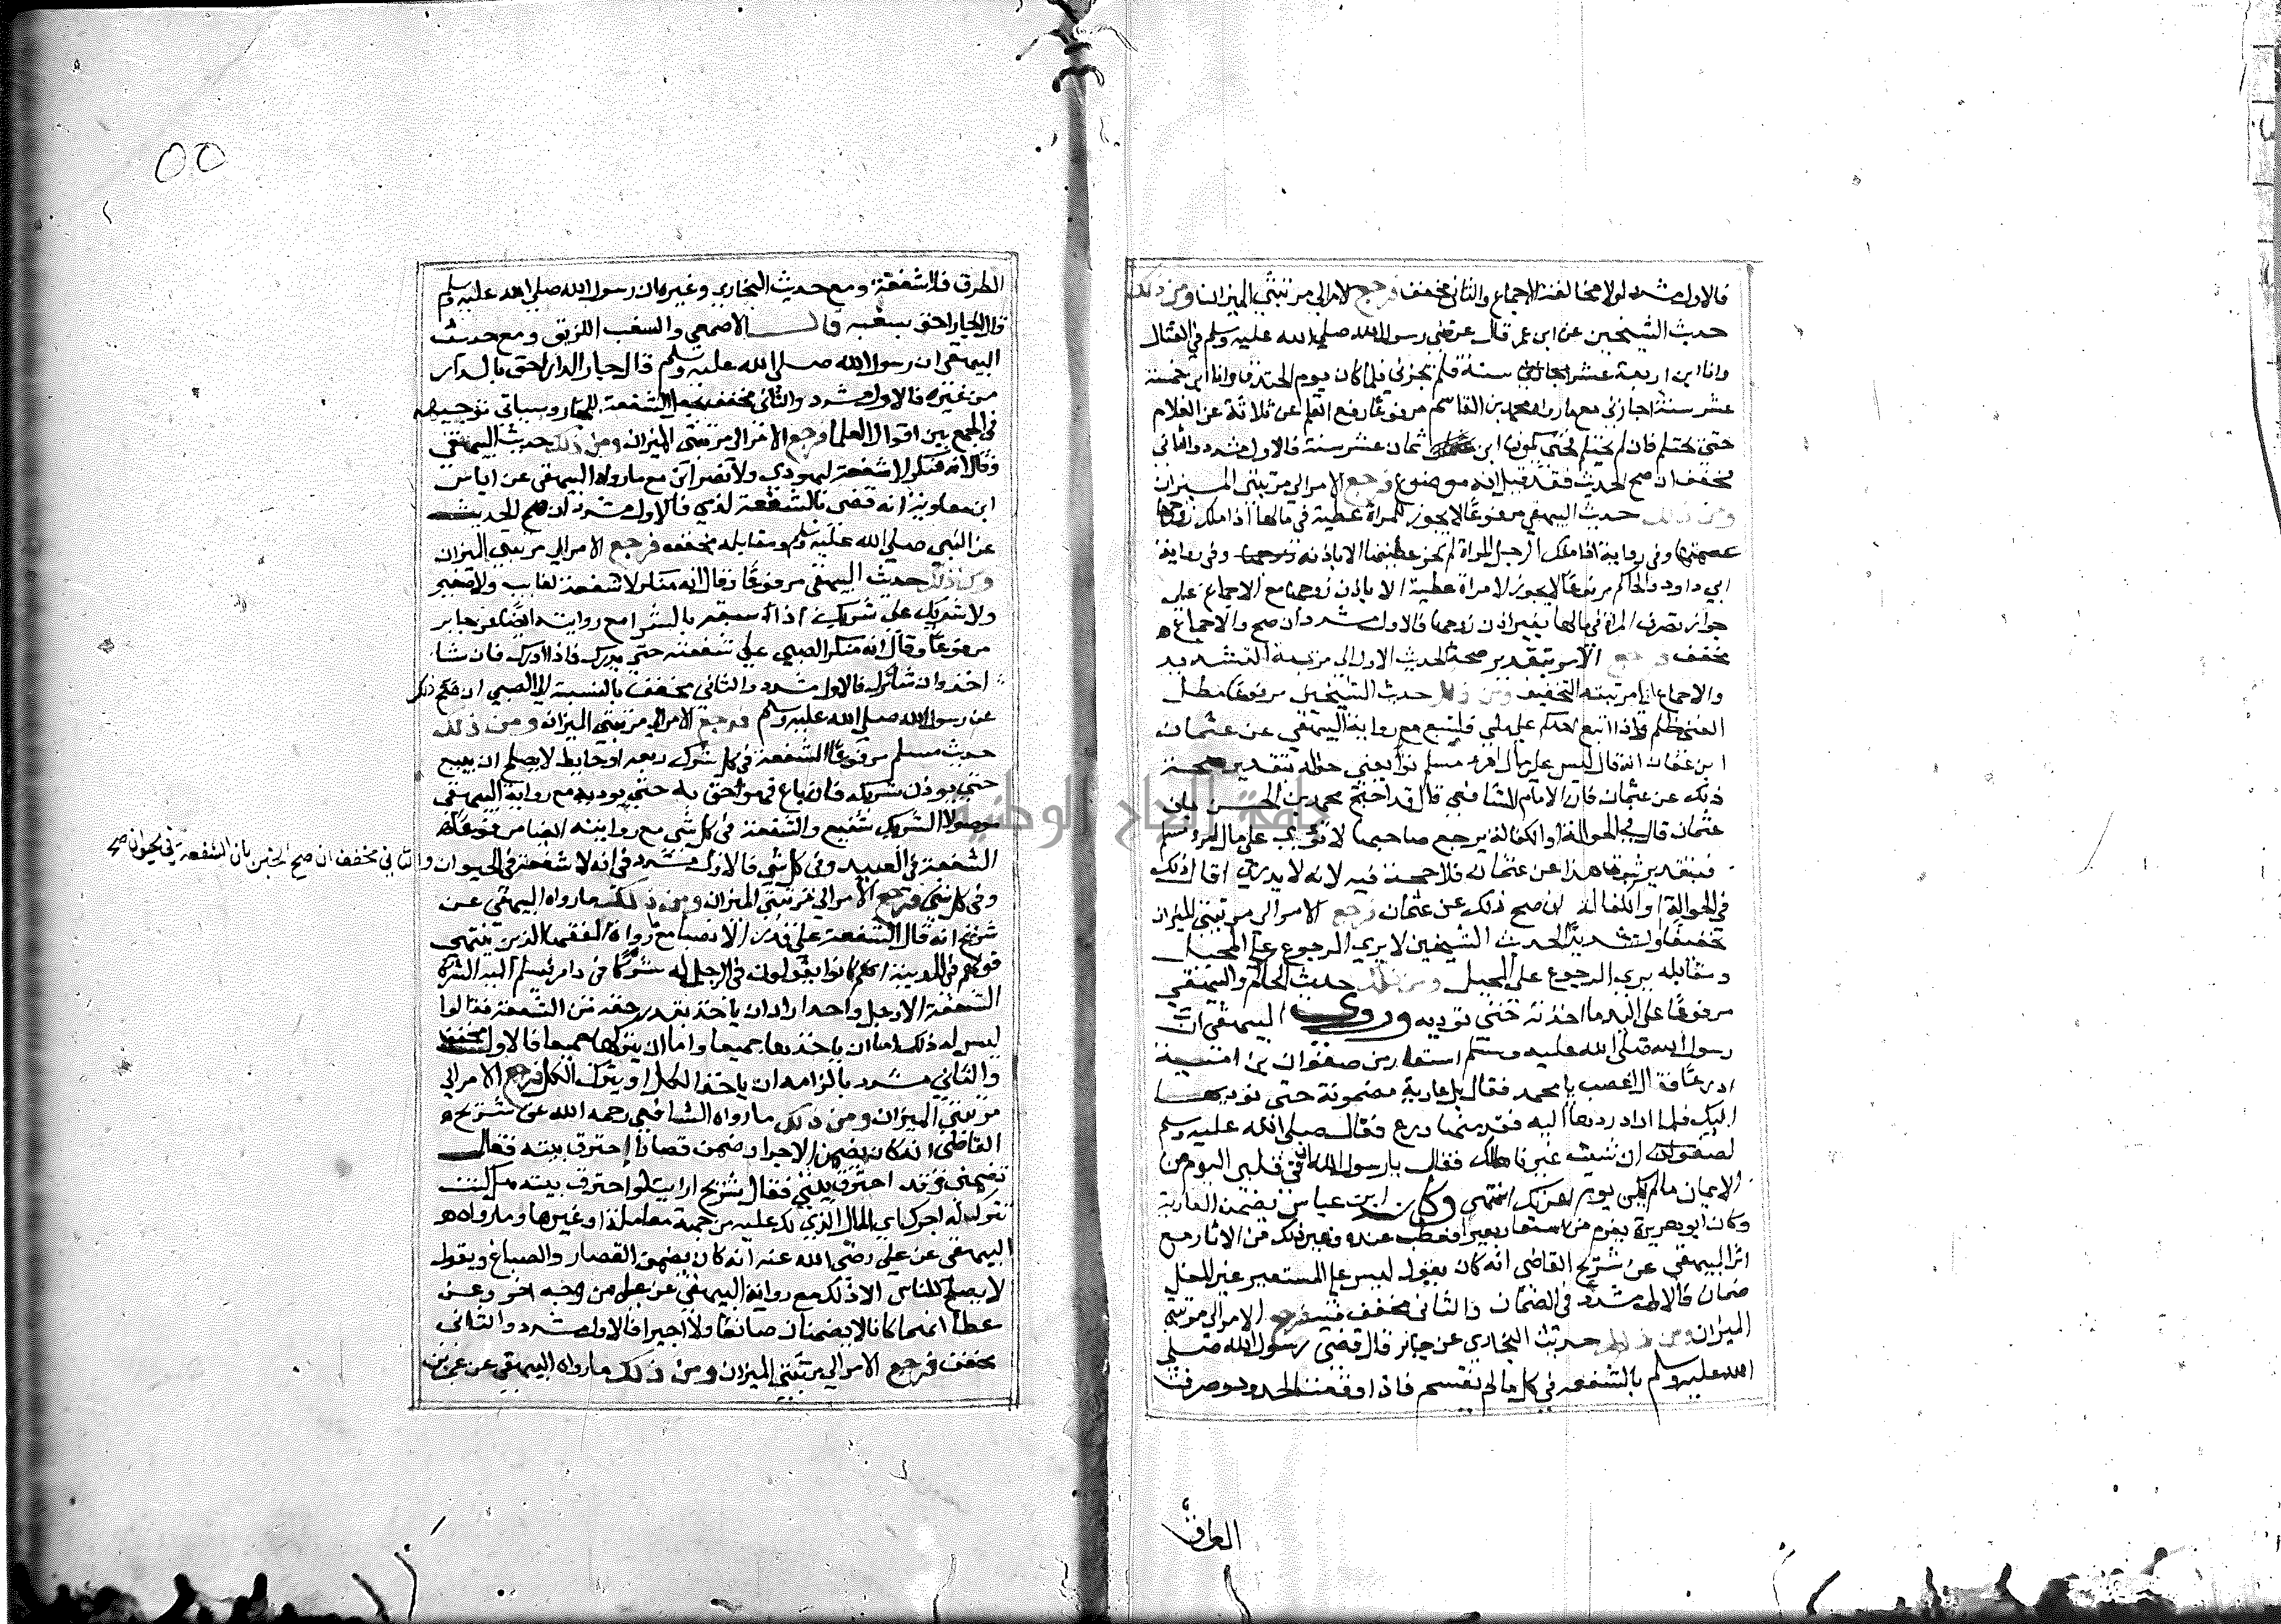 فالاول مشدد لولا مخالفة الاجماع والثاني مخفف فرجع الامر الي مرتبتي الميزان ومن ذلك
حديث الشيخين عن ابن عمر قال عرضني رسول الله صلي الله عليه وسلم في القتال
وانا ابن اربعة عشر سنة فلم يجزني فلما كان يوم الخندق وانا ابن خمسة
عشر سنة اجازني مع ما رواه محمد بن القاسم مرفوعا رفع القلم عن ثلاثة عن الغلام
حتي يحتلم فان لم يحتلم حتي يكون ابن ثمان عشر سنة فالاول مشدد والثاني
مخفف ان صح الحديث فقد قيل انه موضوع فرجع الامر الي مرتبتي الميزان
ومن ذلك حديث البيهقي مرفوعا لا يجوز للمراة عطية في مالها اذا ملك زوجها
عصمتها وفي رواية اذا ملك الرجل المراة لم تجز عطيتها الا باذنه وفي رواية
ابي داود والحاكم مرفوعا لا يجوز لامراة عطية الا باذن زوجها مع الاجماع علي
جواز تصرف المراة في مالها بغير اذن زوجها فالاول مشدد ان صح والاجماع
مخفف فرجع الامر بتقدير صحة الحديث الاول الي مرتبة التشديد
والاجماع الي مرتبة التخفيف ومن ذلك حديث الشيخين مرفوعا مطل
الغني ظلم واذا اتبع احدكم علي ملي فليتبع مع رواية البيهقي عن عثمان
ابن عفان انه قال ليس علي مال امرء مسلم توا يعني حواله بتقدير صحة
ذلك عن عثمان قال الامام الشافعي قال قد احتج محمد بن الحسن بان
عثمان قال في الحوالة او الكفالة يرجع صاحبها لا توي علي مال امرء مسلم
فبتقدير ثبوت هذا عن عثمان فلا حجة فيه لانه لا يدري اقال ذلك
في الحوالة او الكفالة ان صح ذلك عن عثمان فرجع الامر الي مرتبتي الميزان
تخفيفا وتشديدا لحديث الشيخين لا يري الرجوع علي المحيل
ومقابله يري الرجوع علي المحيل ومن ذلك حديث الحاكم والبيهقي
مرفوعا علي اليد ما اخذت حتي توديه وروي البيهقي ان
رسول الله صلي الله عليه وسلم استعار من صفوان بن امية
ادرعا فقال اغصب يا محمد فقال بل عارية مضمونة حتي نوديها
اليك فلما اراد ردها اليه فقد منها درع فقال صلي الله عليه وسلم
لصفوان ان شئت غرمناها لك فقال يا رسول الله ان في قلبي اليوم من
الايمان ما لم يكن يوم اعرتك انتهي وكان ابن عباس يضمن العارية
وكان ابو هريرة يغرم من استعار بعيرا فعطب عنده وغير ذلك من الاثار مع
اثر البيهقي عن شريح القاضي انه كان يقول ليس علي المستعير غير المغل
ضمان فالاول مشدد في الضمان والثاني مخفف فيه فرجع الامر الي مرتبتي
الميزان ومن ذلك حديث البخاري عن جابر قال قضي رسول الله صلي
الله عليه وسلم بالشفعة في كل ما لم يقسم فاذا وقعت الحدود وصرفت
الطرق
٥٥
الطرق فلا شفعة ومع حديث البخاري وغيره ان رسول الله صلي الله عليه وسلم
قال الجار احق بسقبه قال الاصمعي والسقب اللزيق ومع حديث
البيهقي ان رسول الله صلي الله عليه وسلم قال جار الدار احق بالدار
من غيره فالاول مشدد والثاني مخفف بجعل الشفعة للجار وسياتي توجيهه
في الجمع بين اقوال العلما فرجع الامر الي مرتبتي الميزان ومن ذلك حديث البيهقي
وقال انه منكر لا شفعة ليهودي ولا نصراني مع ما رواه البيهقي عن اياس
ابن معاوية انه قضي بالشفعة لذمي فالاول مشدد ان صح الحديث
عن النبي صلي الله عليه وسلم ومقابله مخفف فرجع الامر الي مرتبتي الميزان
ومن ذلك حديث البيهقي مرفوعا وقال انه منكر لا شفعة لغايب ولا صغير
ولا شريك علي شريك اذا سبقه بالشرا مع روايته ايضا عن جابر
مرفوعا وقال انه منكر الصبي علي شفعته حتي يدرك فاذا ادرك فان شا
اخذ وان شا ترك فالاول مشدد والثاني مخفف بالنسبة الي الصبي ان صح ذلك
عن رسول الله صلي الله عليه وسلم فرجع الامر الي مرتبتي الميزان ومن ذلك
حديث مسلم مرفوعا الشفعة في كل شرك ربعه او حايط لا يصلح ان يبيع
حتي يوذن شريكه فان باع فهو احق به حتي يوذنه مع رواية البيهقي
موصولا الشريك شفيع والشفعة في كل شي مع روايته ايضا مرفوعا
الشفعة في العبيد وفي كل شي فالاول مشدد في انه لا شفعة في الحيوان والثاني مخفف ان صح الخبر بان الشفعة في الحيوان صح
وفي كل شي فرجع الامر الي مرتبتي الميزان ومن ذلك ما رواه البيهقي عن
شريح انه قال الشفعة علي قدر الانصبا مع ما رواه الفقها الذين ينتهي
قولهم في المدينة انهم كانوا يقولون في الرجل له شركا في دار فيسلم اليه الشركا
الشفعة الا رجل واحد اراد ان ياخذ بقدر حقه من الشفعة فقالوا
ليس له ذلك اما ان ياخذها جميعا واما ان يتركها جميعا فالاول مخفف
والثاني مشدد بالزامه ان ياخذ الكل او يترك الكل فرجع الامر الي
مرتبتي الميزان ومن ذلك ما رواه الشافعي رحمه الله عن شريح
القاضي انه كان يضمن الاجرا وضمن قصارا احترق بيته فقال
تضمني وقد احترق بيتي فقال شريح ارايت لو احترق بيته كنت
تترك له اجرك اي المال الذي لك عليه من جهة معاملة او غيرها وما رواه
البيهقي عن علي رضي الله عنه انه كان يضمن القصار والصباغ ويقول
لا يصلح للناس الا ذلك مع رواية البيهقي عن علي من وجه اخر وعن
عطا انهما كانا لا يضمنان صانعا ولا اجيرا فالاول مشدد والثاني
مخفف فرجع الامر الي مرتبتي الميزان ومن ذلك ما رواه البيهقي عن عمر بن
جامعة النجاح الوطنية